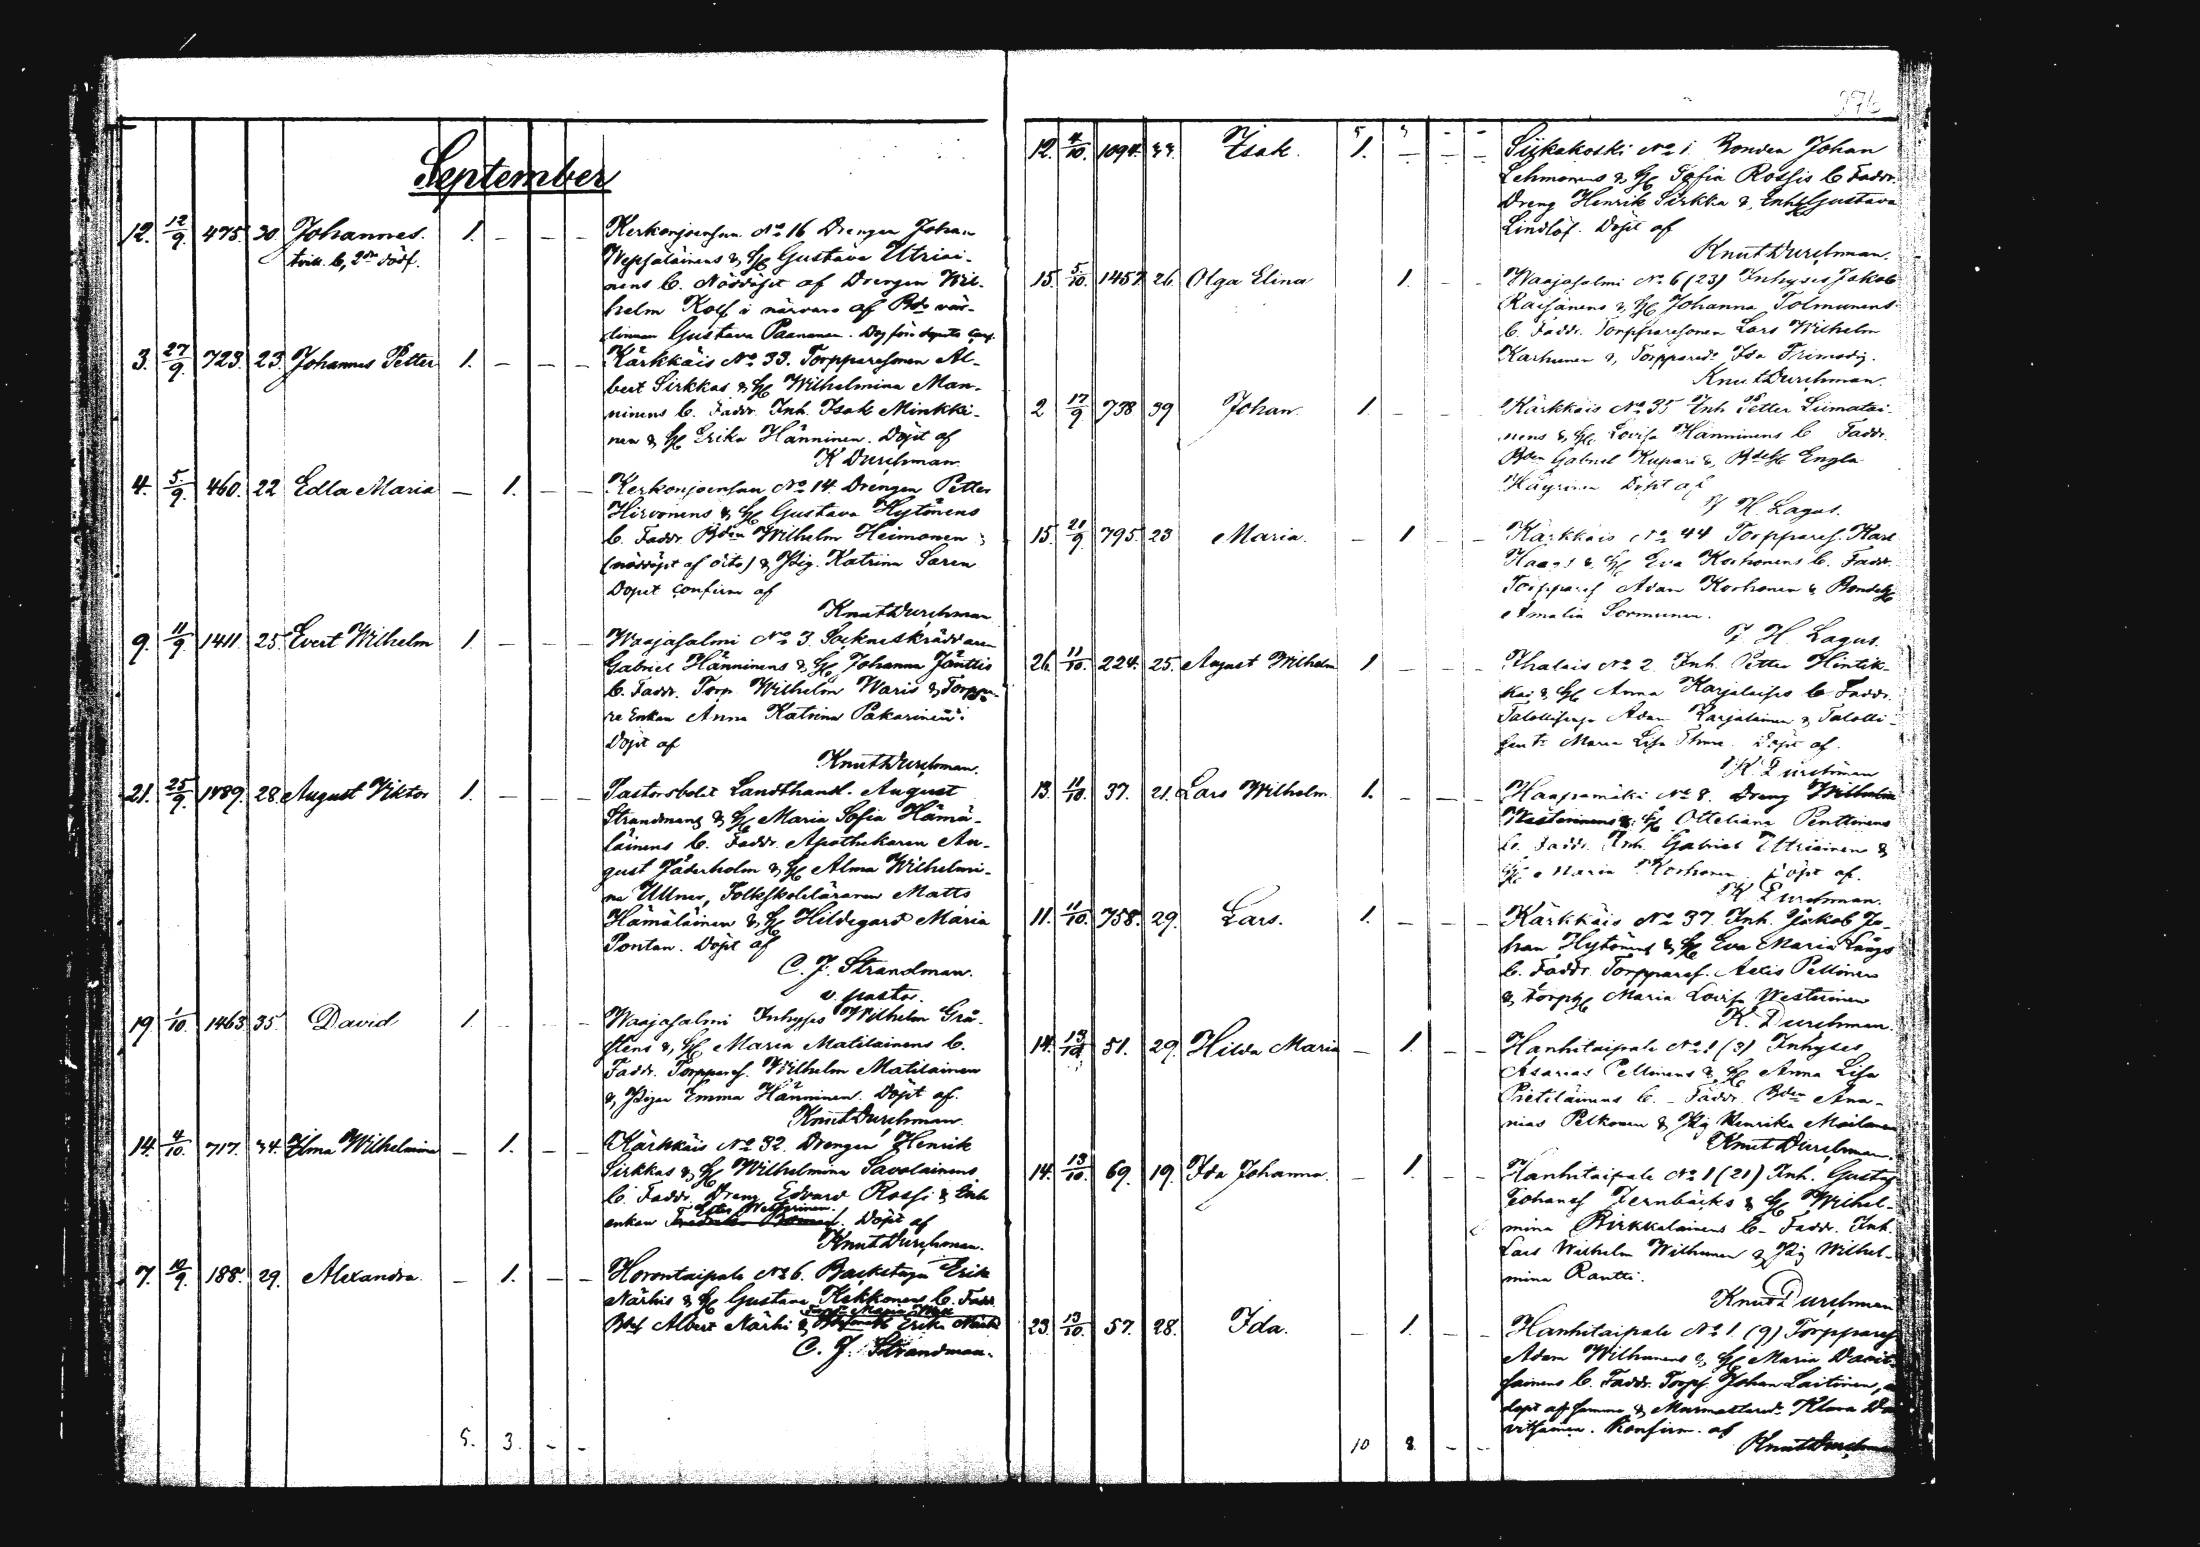 September
12. 12/9. 475. 30. Johannes. 1. – – – Kerkonjoensuu № 16 Drengen Johan
tvill. b, 2dra dödf. Wepsäläinens & H. Gustava Utriai-
nens b. Nöddöpt af Drengen Wil-
helm Kolf i närvaro af Bde vär-
dinnan Gustava Paananen. Dog före dopets conf.
3. 27/9. 723. 23. Johannes Petter 1. – – – Kärkkäis № 33. Torpparesonen Al-
bert Sirkkas & H. Wilhelmina Man-
ninens b. Faddr. Inh. Isak Minkki-
nen & H. Erika Hänninen. Döpt af
K Durchman.
4. 5/9. 460. 22 Edla Maria – 1. – – Kerkonjoensuu № 14. Drengen Petter
Hirvonens & H. Gustava Hytönens
b. Faddr. Bden Wilhelm Heimonen
(nöddöpt af dito) & Pig. Katrina Saren
Dopet confirm af
Knut Durchman
9. 11/9. 1411. 25. Evert Wilhelm 1. – – – Waajasalmi № 3. Sockneskräddaren
Gabriel Hänninens & H. Johanna Jänttis
b. Faddr. Torp. Wilhelm Waris & Torppa-
re Enkan Anna Katrina Pakarinen.
Döpt af
Knut Durchman.
21. 25/9. 1489. 28. August Viktor 1. – – – Pastorsbolet Landthandl. August
Strandmans & H. Maria Sofia Hämä-
läinens b. Faddr. Apothekaren Au-
gust Jäderholm & H. Alma Wilhelmi-
na Ullner, Folkskoleläraren Matts
Hämäläinen & H. Hildegard Maria
Pontan. Döpt af
C. J. Strandman.
v. pastor.
19. 1/10. 1463. 35. David 1. – – – Waajasalmi Inhyses Wilhelm Grå-
stens & H. Maria Matilainens b.
Faddr. Torppares. Wilhelm Matilainen
& Pigan Emma Hänninen. Döpt af.
Knut Durchman.
14. 4/10. 717. 34. Ilma Wilhelmina – 1. – – Kärkkäis № 32. Drengen Henrik
Sirkkas & H. Wilhelmina Savolainens
b. Faddr. Dreng Edvard Rossi & Inh
enkan Westerinen. Döpt af
Knut Durchman.
7. 10/9. 188. 29. Alexandra. – 1. – – Horontaipale № 6. Backstugu Erik
Närhis & H. Gustava Kekkonens b. Fadd
Maria
Albert Närhi & Erika Närhi
C. J. Strandman.
5. 3. – –
5 3 – –
12. 4/10. 1094. 33. Isak. 1. – – – Siikakoski № 1. Bonden Johan
Lehmonens & H. Sofia Rossis b. Faddr.
Dreng Henrik Sirkka & Inh. Gustava
Lindlöf. Döpt af
Knut Durchman.
15. 5/10. 1457. 26. Olga Elina 1. – – Waajasalmi № 6 (23) Inhyses Jakob
Raisänens & H. Johanna Tolmunens
b. Faddr. Torpparesonen Lars Wilhelm
Karhunen & Torppared. Ida Frimodig.
Knut Durchman.
2 17/9. 738 39 Johan. 1. – – – Kärkkäis № 35 Inh Petter Liimatai-
nens & H. Lovisa Hänninens b Faddr.
Bden Gabriel Kupari & Engla
Häyrinen Döpt af
H. Lagus.
15. 21/9. 795. 23 Maria. – 1 – – Kärkkäis № 44 Torppares. Karl
& H. Eva Korhonens b. Faddr.
Torppares Adam Korhonen & Bondeh
Amalia Sormunen.
H. Lagus.
26. 11/10. 224. 25. August Wilhelm 1 – – – № 2 Inh. Petter Hintik-
kas & H. Anna Karjalaisis b Faddr.
Adam Karjalainen &
Maria Lisa Döpt af.
K. Durchman
13. 11/10. 37. 21. Lars Wilhelm. 1. – – – Haapamäki № 8. Dreng Wilhelm
Westerinens & H. Otteliana Penttinens
b. Faddr. Inh. Gabriel Utriainen &
H. Maria Korhonen. Döpt af.
K. Durchman.
11. 11/10. 758. 29. Lars. 1. – – – Kärkkäis № 37. Inh. Jakob Jo-
han Hytönens & H. Eva Maria Långs
b. Faddr. Torppares. Pellinen
& Torph. Maria Lovisa Westerinen
K. Durchman.
14. 13/10. 51. 29. Hilda Maria – 1. – – Hanhitaipale № 1 (3) Inhyses
Asarias Pellinens & H. Anna Lisa
Pietiläinens b. – Faddr. Bden Ana-
nias Pelkonen & Pig Henrika Moilanen
Knut Durchman.
14. 13/10. 69. 19. Ida Johanna. – 1. – – Hanhitaipale № 1 (21) Inh. Gustaf
Johans. Jernbäcks & H. Wilhel-
mina Pirkkalainens b – Faddr. Inh.
Lars Wilhelm Wilhunen & Pig Wilhel-
mina Rantti.
Knut Durchman
23. 13/10. 57. 28. Ida. – 1. – – Hanhitaipale № 1. (9) Torppares
Adam Wilhunens & H. Maria Davit-
sainens b. Faddr. Torps. Johan Laitinen,
döpt af samma & Murmästared. Klara Da
vitsainen. Konfirm. af
Knut Durchman
10 8 – –